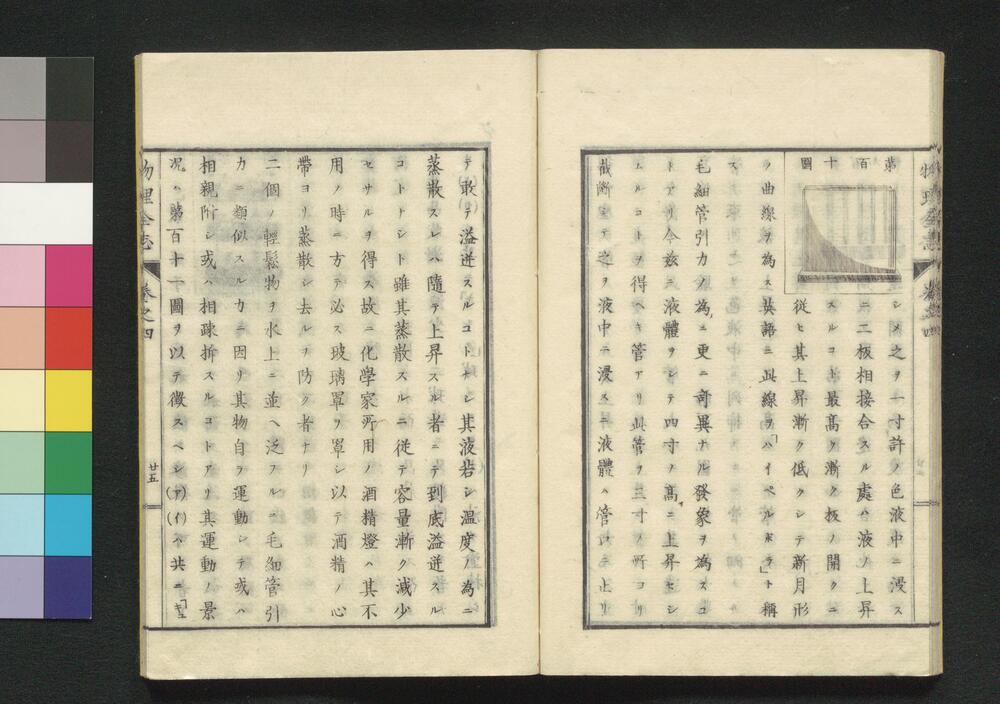 第百十圖
シメ之ヲ一寸許ノ色液中ニ浸ス
ニ二板相接合スル處ハ液ノ上昇
スルコト最高ク漸ク板ノ開クニ
從ヒ其上昇漸ク低クシテ新月形
ノ曲線ヲ為ス英語ニ此線ヲハ「イペルボラ」ト稱
ス
毛細管引力ノ為ニ更ニ奇異ナル發象ヲ為スコ
トアリ今玆ニ液體ヲシテ四寸ノ高ニ上昇セシ
ムルコトヲ得ヘキ管アリ此管ヲ三寸ノ所ヨリ
截断シテ之ヲ液中ニ浸スニ液體ハ管口ニテ止リ
テ敢テ溢迸スルコトナシ其液若シ温度ノ為ニ
蒸散スレハ隨テ上昇スル者ニテ到底溢迸スル
コトナシト雖其蒸散スルニ従テ容量漸ク減少
セサルヲ得ス故ニ化学家所用ノ酒精燈ハ其不
用ノ時ニ方テ必ス玻璃罩ヲ罩シ以テ酒精ノ心
帶ヨリ蒸散シ去ルヲ防ク者ナリ
二個ノ輕鬆物ヲ水上ニ並ヘ泛フルニ毛細管引
力ニ類似スル力ニ因リ其物自ラ運動シテ或ハ
相親附シ或ハ相疎拚スルコトアリ其運動ノ景
况ハ第百十一圖ヲ以テ徴スベシ(ア)(イ)ハ共ニ
物理全志
卷之四
廿五